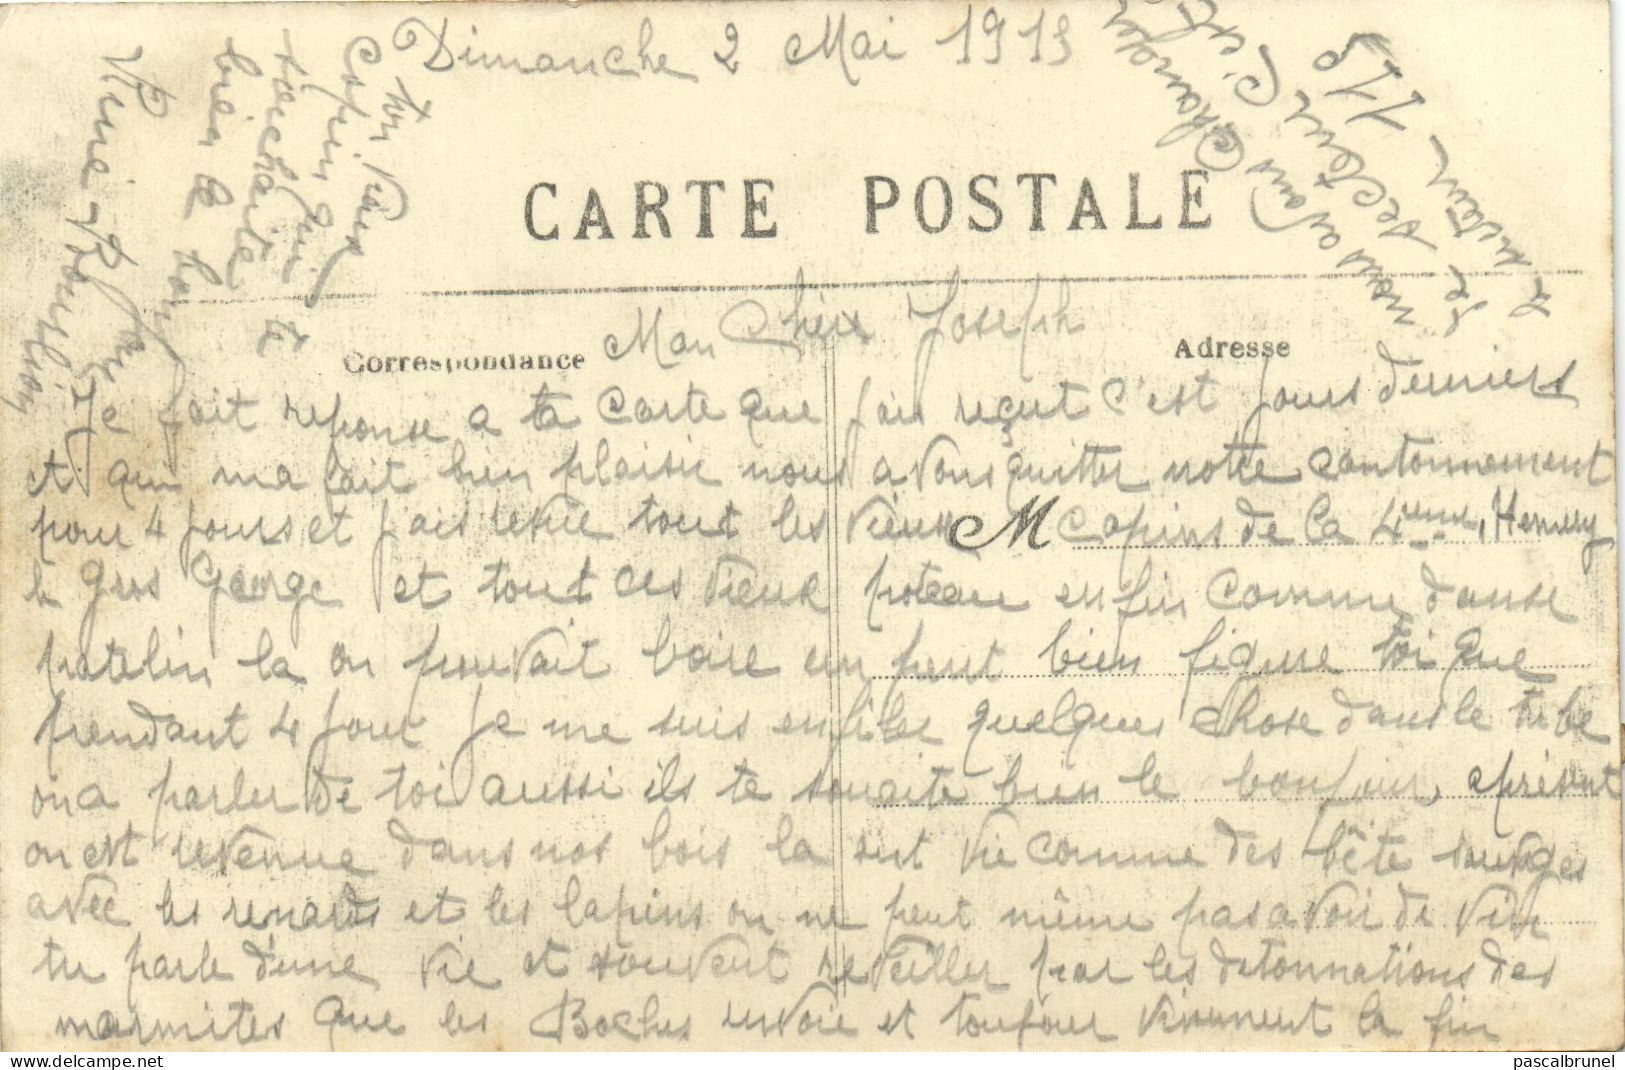 Dimanche 2 Mai 1915
CARTE POSTALE
Mon Chere Joseph
Correspondance
Adresse
Je fait reponse a ta carte que j'ais reçut c'est jours derniers
et qui ma fait bien plaisir nous avons quitter notre cantonnement
pour 4 jours et j'ais revue tout les vieux copins de la 4eme, Henry
le gros George et tout ces vieux poteau enfin comme danse
patelin la on pouvait boire un peut bien figure toi que
pendant 4 jour je me suis enfiler quelques chose dans le tube
M
on a parler de toi aussi ils te souaite bien le bonjour, apresent
on est revenue dans nos bois la ont vie comme des bête sauvages
avec les renards et les lapins on ne peut même pas avoir de vin
tu parle d'une vie et souvent reveiller par les detonnations des
marmites que les Boches envoie et toujour vivement la fin
nous avons changer
de secteur
secteur 115
Ton vieux
copin qui te
souhaite
bien le bonjour
pascalbrunel